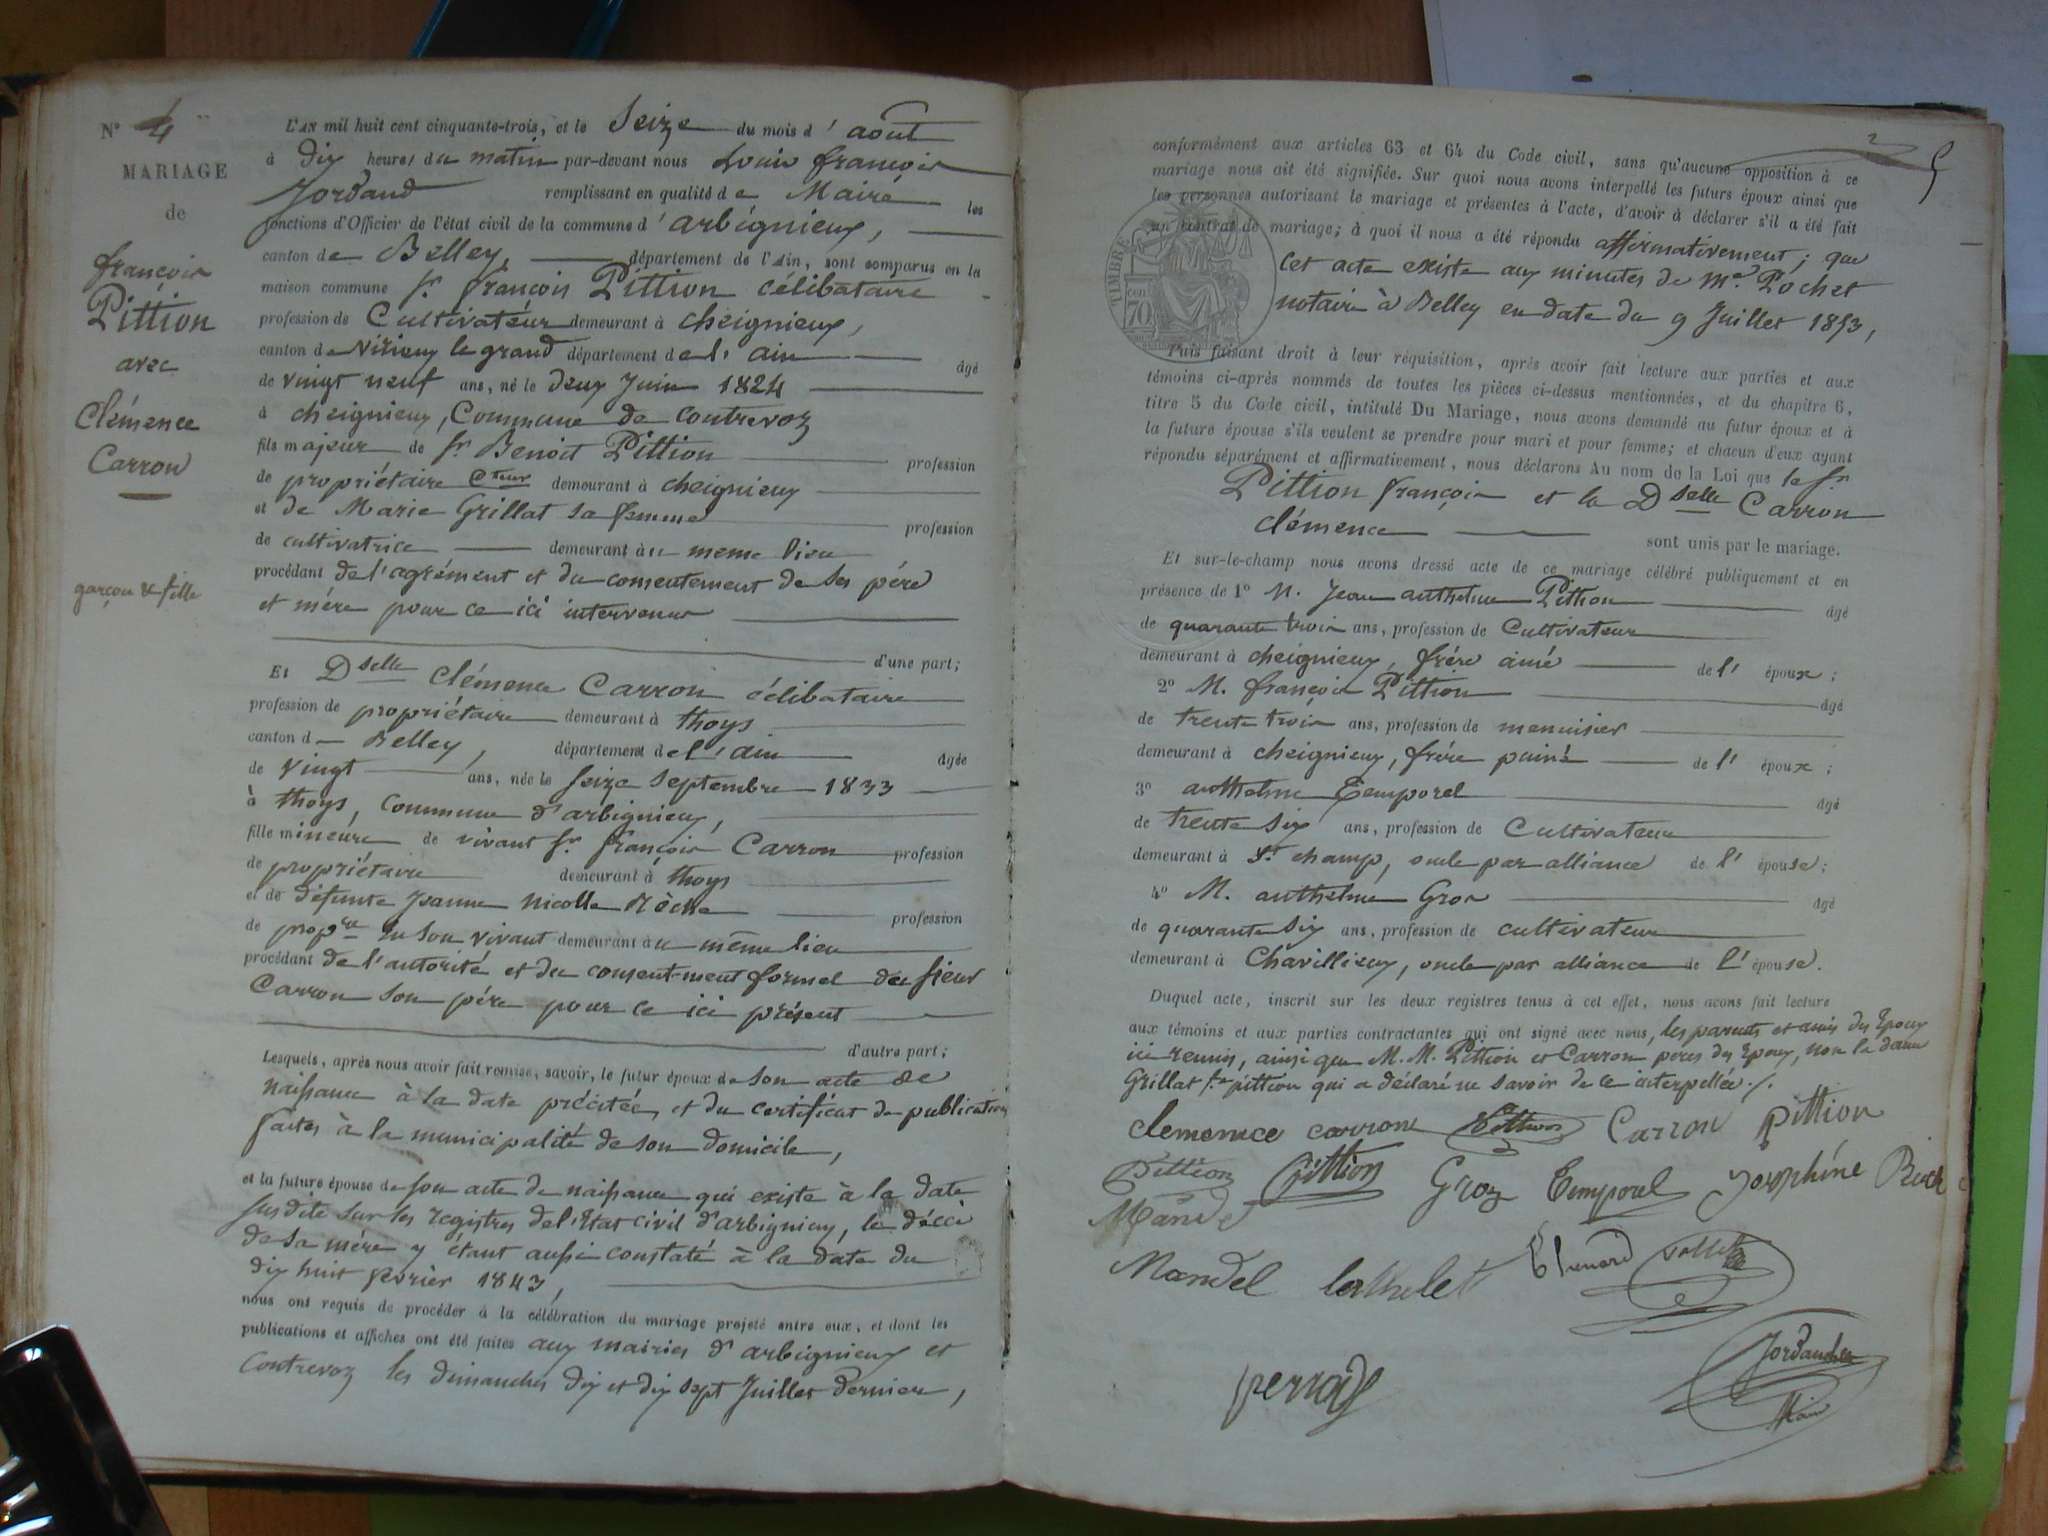 N° 4
MARIAGE
de
françois
Pittion
avec
Clémence
Carron
garçon & fille
L'AN mil huit cent cinquante-trois, et le Seize du mois d' août
à dix heures du matin par-devant nous Louis françois
Jordand remplissant en qualité de Maire les
fonctions d'Officier de l'état civil de la commune d'arbignieux,
canton de Belley, département de l'Ain, sont comparus en la
maison commune Sr françois Pittion célibataire
profession de Cultivateur demeurant à cheignieux,
canton de virieux le grand département de l'ain âgé
de vingt neuf ans, né le deux Juin 1824
à cheignieux, Commune de contrevoz
fils majeur de Sr Benoit Pittion profession
de propriétaire cteur demeurant à cheignieux
et de Marie Grillat sa femme profession
de cultivatrice demeurant au meme lieu
procédant de l'agrément et du consentement de ses père
et mère pour ce ici intervenus
d'une part;
Et Dselle Clémence Carron célibataire
profession de propriétaire demeurant à thoys
canton d Belley, département de l'ain âgée
de vingt ans, née le seize septembre 1833
à thoys, commune d'arbignieux,
fille mineure de vivant Sr françois Carron profession
de propriétaire demeurant à thoys
et de défunte Jeanne Nicolle profession
de propre en son vivant demeurant au même lieu
procédant de l'autorité et du consentement formel du sieur
Carron son père pour ce ici présent
d'autre part;
Lesquels, après nous avoir fait remise, savoir, le futur époux de son acte de
naissance à la date précitée, et du certificat de publications
faites à la municipalité de son domicile,
et la future épouse de son acte de naissance qui existe à la date
susdite sur les registres de l'Etat civil d'arbignieux, le décès
de sa mère y étant aussi constaté à la date du
dix huit fevrier 1843,
nous ont requis de procéder à la célébration du mariage projeté entre eux, et dont les
publications et affiches ont été faites aux mairies d'arbignieux et
Contrevoz les dimanches dix et dix sept Juillet dernier,
5
conformément aux articles 63 et 64 du Code civil, sans qu'aucune opposition à ce
mariage nous ait été signifiée. Sur quoi nous avons interpellé les futurs époux ainsi que
les personnes autorisant le mariage et présentes à l'acte, d'avoir à déclarer s'il a été fait
un contrat de mariage; à quoi il nous a été répondu affirmativement; que
cet acte existe aux minutes de Me Pochet
notaire à Belley en date du 9 Juillet 1853,
TIMBRE
70
Puis faisant droit à leur réquisition, après avoir fait lecture aux parties et aux
témoins ci-après nommés de toutes les pièces ci-dessus mentionnées, et du chapitre 6,
titre 5 du Code civil, intitulé Du Mariage, nous avons demandé au futur époux et à
la future épouse s'ils veulent se prendre pour mari et pour femme; et chacun d'eux ayant
répondu séparément et affirmativement, nous déclarons Au nom de la Loi que le Sr
Pittion françois et la Dselle Carron
clémence
sont unis par le mariage.
Et sur-le-champ nous avons dressé acte de ce mariage célébré publiquement et en
présence de 1° M. Jean anthelme Pittion âgé
de quarante trois ans, profession de Cultivateur
demeurant à cheignieux, frère ainé de l' époux;
2° M. françois Pittion âgé
de trente trois ans, profession de menuisier
demeurant à cheignieux, frère puiné de l' époux;
3° anthelme Temporel âgé
de trente six ans, profession de Cultivateur
demeurant à St champ, oncle par alliance de l' épouse;
4° M. anthelme Gros âgé
de quarante six ans, profession de cultivateur
demeurant à Chavillieux, oncle par alliance de l'épouse.
Duquel acte, inscrit sur les deux registres tenus à cet effet, nous avons fait lecture
aux témoins et aux parties contractantes qui ont signé avec nous, les parents et amis des Epoux
ici reunis, ainsi que M.M. Pittion et Carron peres des Epoux, non la dame
Grillat fe pittion qui a déclaré ne savoir de ce interpellée ./.
clemence carron Pittion Carron Pittion
Pittion Pittion Groz Temporel Josephine
Mandel
Mandel
perrad
Maire